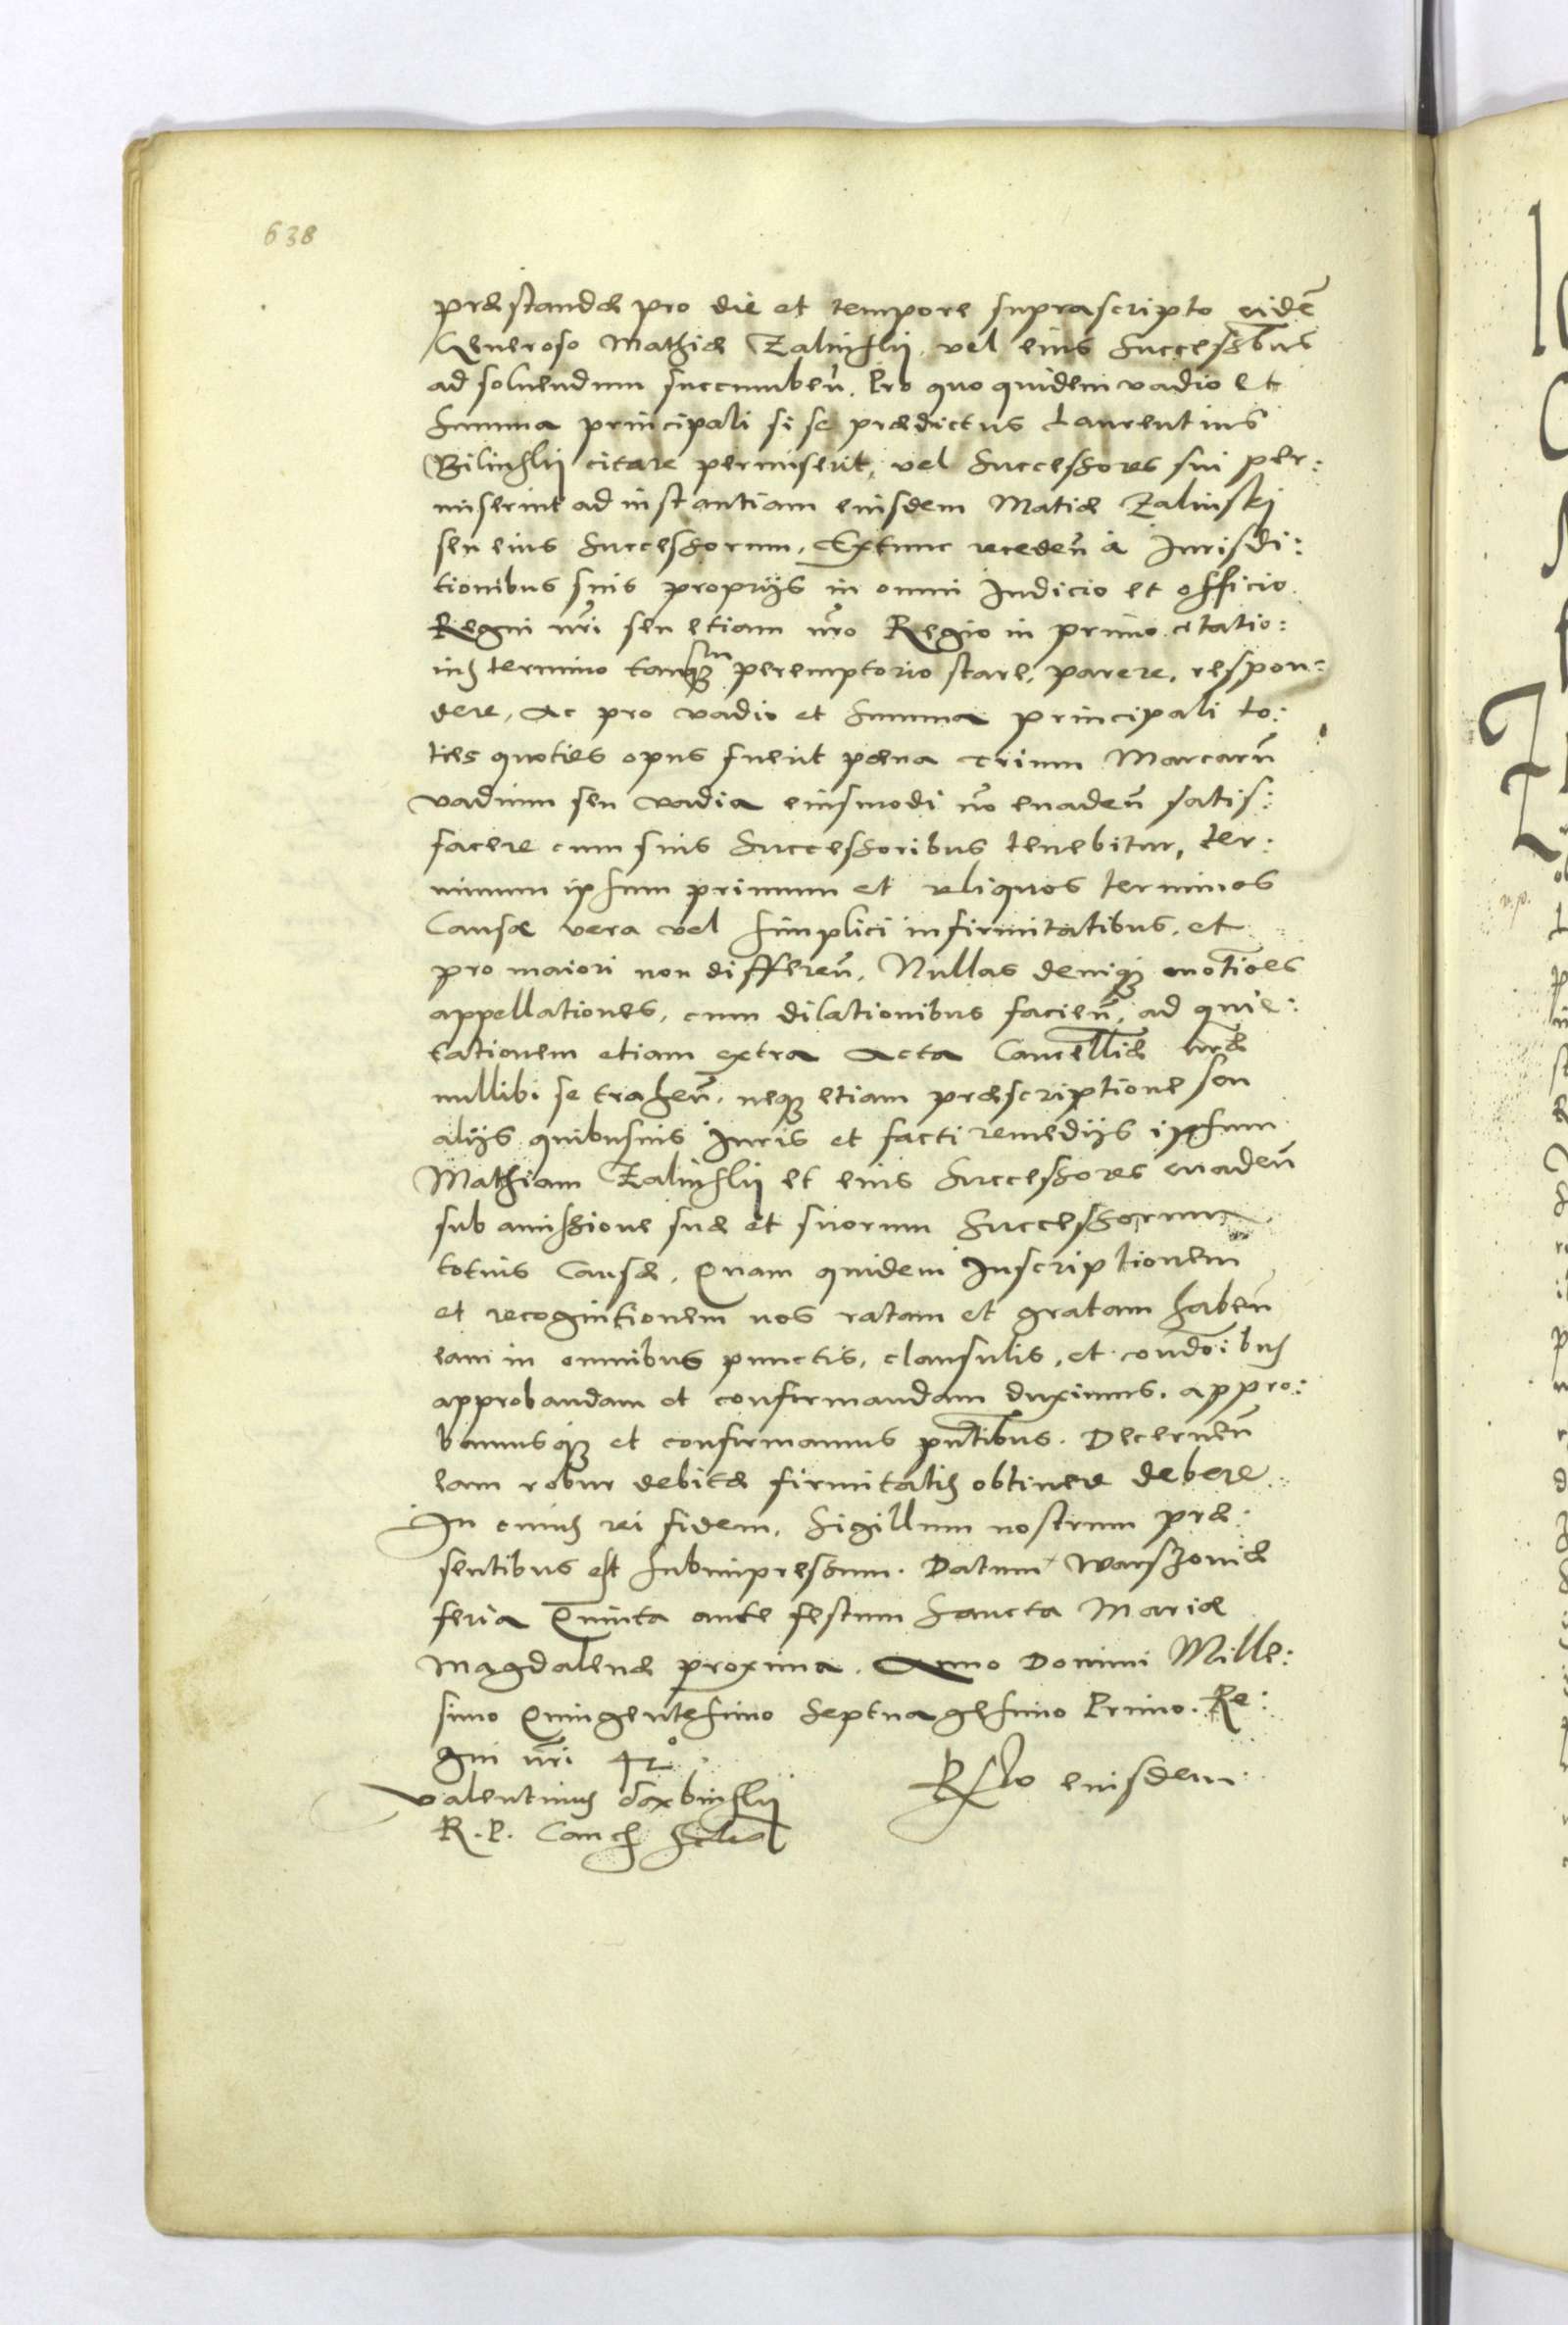 638
præstandæ pro die et tempore suprascripto eidē
Generoso Mathiæ Zalinskij, vel eius Successbus
ad soluendum succumbeñ. Pro quo quidem vadio et
Summa principali si se prædictus Laurentius
Bilinskij citare permiserit, vel Successores sui per:
miserint ad instantiam eiusdem Matiæ Zalinskj
seu eius Successorum, Extunc recedeñ à Jurisdi:
tionibus suis proprijs in omni Judicio et officio
Regni nri seu etiam nro Regio in primo citatio:
nis termino tanquam peremptorio stare, parere, respon:
dere, ac pro vadio et Summa principali to:
ties quoties opus fuerit pæna trium Marcarũ
vadium seu vadia eiusmodi no euadeñ satis:
facere cum suis Successoribus tenebitur, ter:
minum ipsum primum et reliquos terminos
Causæ vera vel simplici infirmitatibus, et
pro maiori non differeñ, Nullas deniqз motioes
appellationes, cum dilationibus facieñ, ad quie:
tationem etiam extra Acta Cancellæ nræ
nullibi se traheñ, neqз etiam præscriptione seu
alijs quibusuis Juris et facti remedijs ipsum
Mathiam Zalinskij et eius Successores euadeñ
sub amissione suæ et suorum Successorum
totius Causæ, Quam quidem Inscriptionem
et recognitionem nos ratam et gratam habeñ
eam in omnibus punctis, clausulis, et condoibus
approbandam et confirmandam duximus, appro:
bamusqз et confirmamus pntibus. Decerneñ
eam robur debitæ firmitatis obtinere debere
In cuius rei fidem, Sigillum nostrum præ:
sentibus est subimpressum. Datum Warszoviæ
feria Quinta ante festum Sancta Mariæ
Magdalenæ proxima. Anno Domini Mille:
simo Quingentesimo Septuagesimo Primo. Re:
gni nri 42°
Valentinus Dąxbinskij
R. P. Canc
Rlo eiusdem